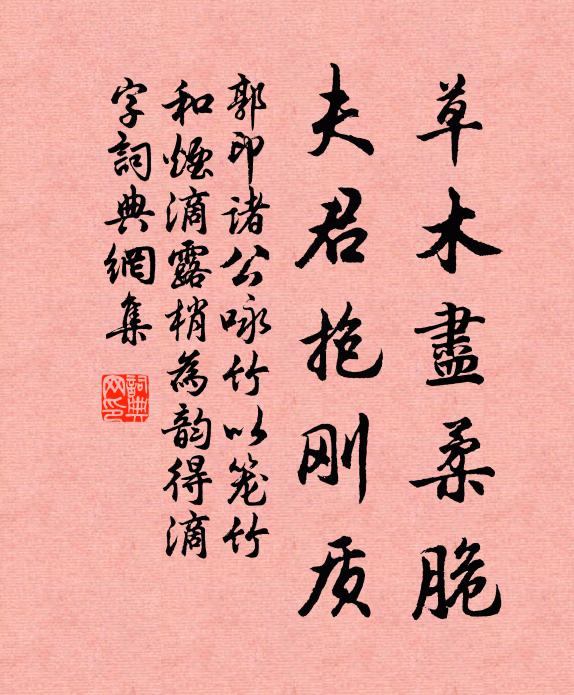 草木盡柔脆
夫君抱刚质
郭印诸公咏竹以笼竹
和烟滴露梢為韵得滴
字詞典網集
詞典网印